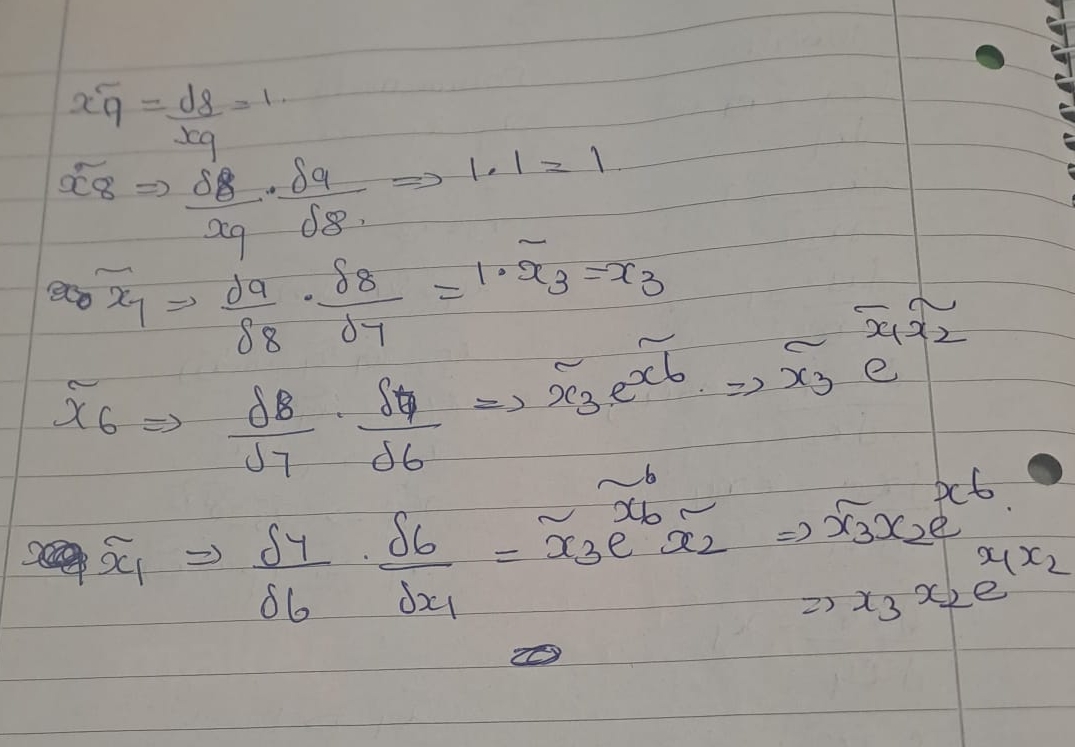 x̃9 = δ8/x9 = 1.
x̃8 ⇒ δ8/x9 · δ9/δ8. ⇒ 1·1 = 1
x̃7 ⇒ δ9/δ8 · δ8/δ7 = 1·x̃3 = x3
x̃6 ⇒ δ8/δ7 · δ7/δ6 ⇒ x̃3 e^x̃6. ⇒ x̃3 e^x̃1x̃2
x̃1 ⇒ δ7/δ6 · δ6/δx1 = x̃3 e^x̃6 x̃2 ⇒ x̃3x2e^x6.
⇒ x3 x2e^x1x2